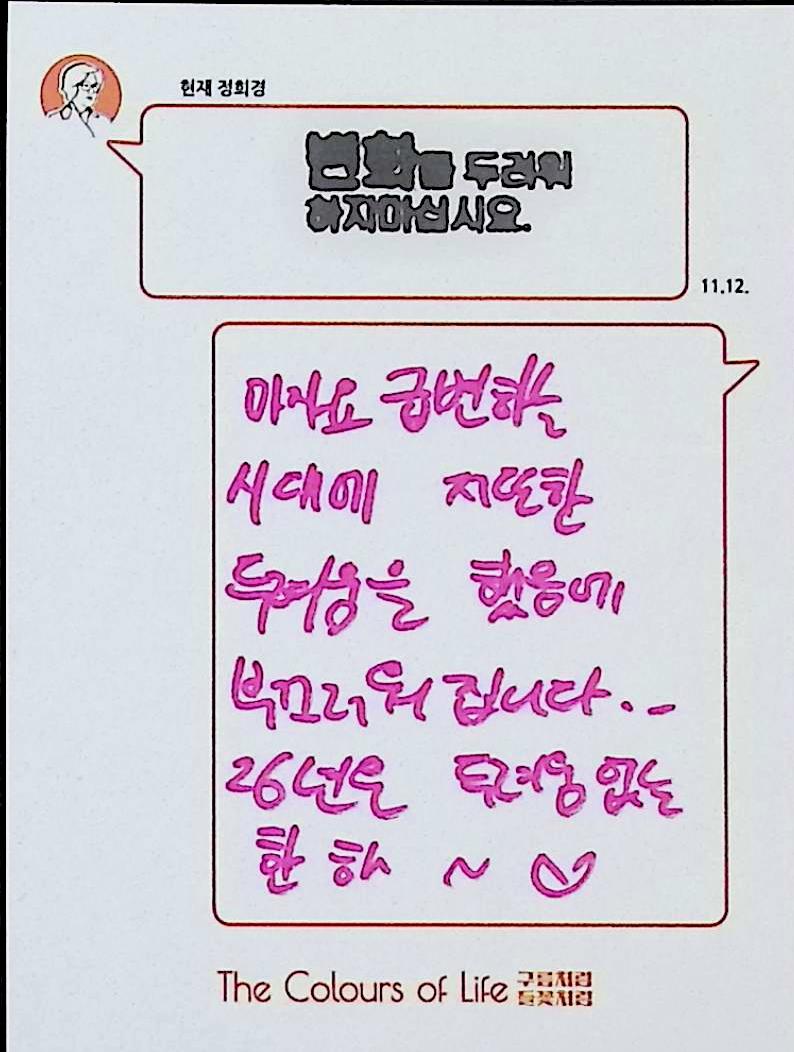 현재 정희경
변화를 두려워
하지마십시요.
11.12.
마자요 급변하는
시대에 저또한
두려움을 했음에
부끄러워 집니다..
26년은 두려움 없는
한 해 ~
The Colours of Life 구름처럼
들꽃처럼